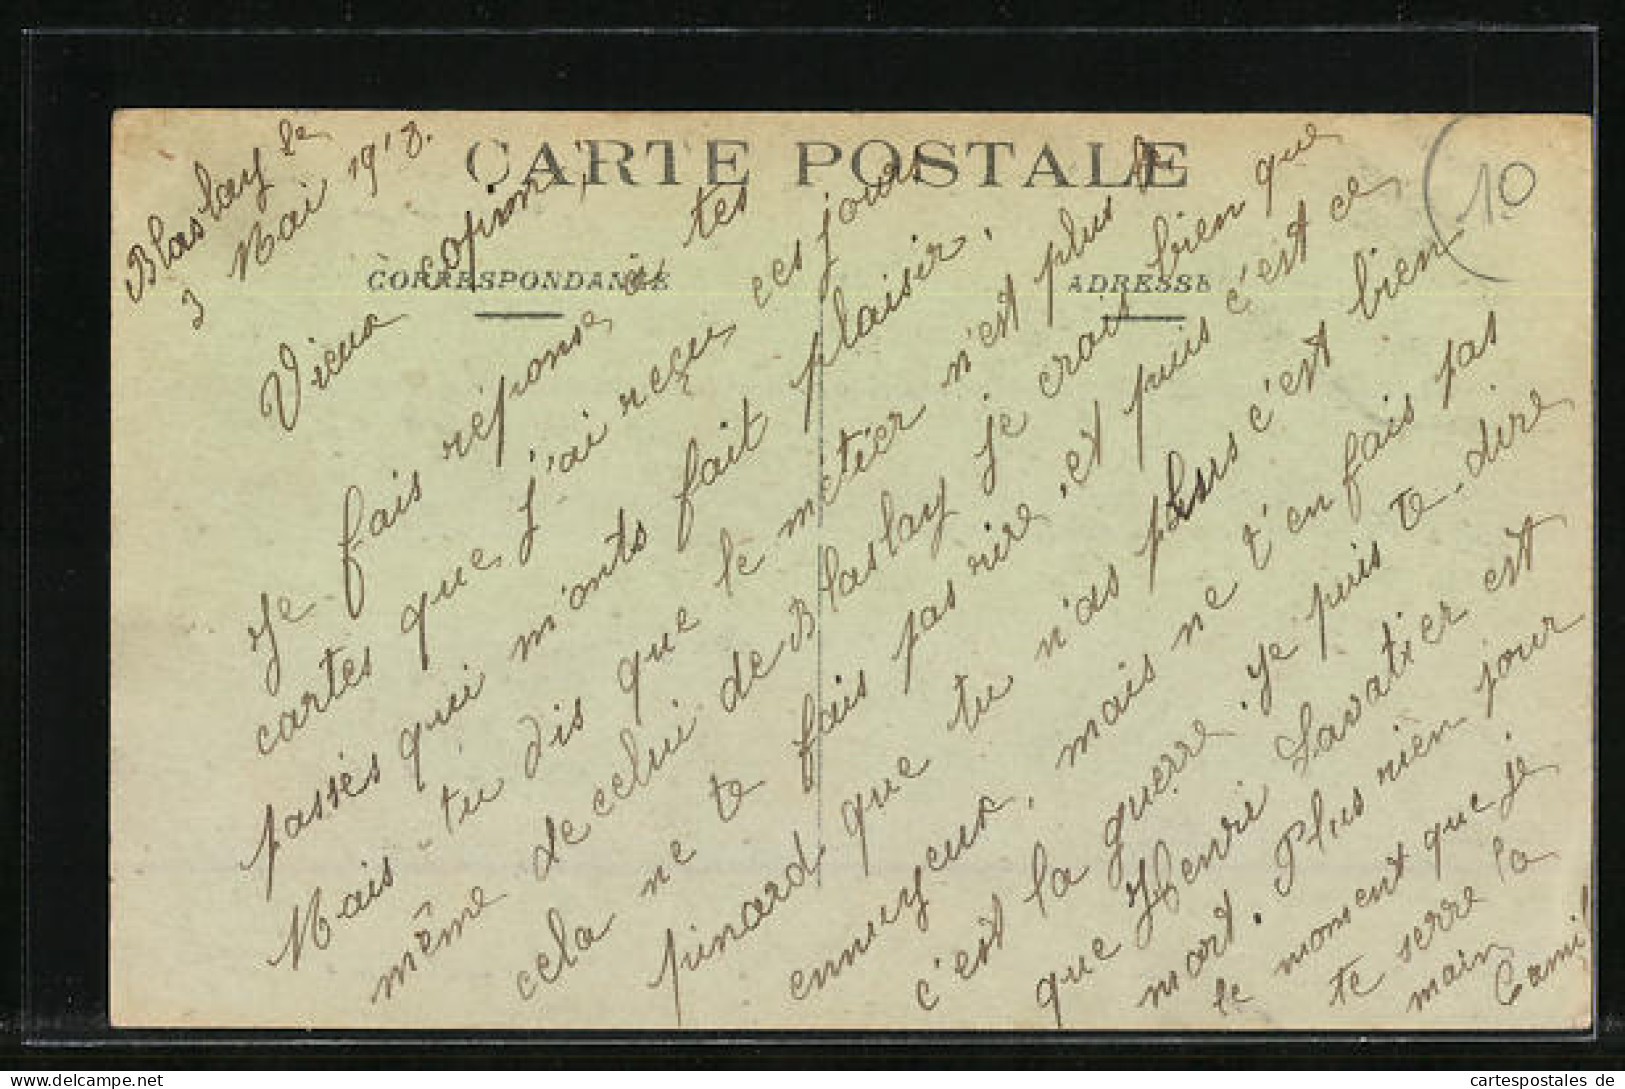 CARTE POSTALE
CORRESPONDANCE
ADRESSE
10
Blaslay le
3 Mai 1918.
Vieux copin,
Je fais réponse à tes
cartes que j'ai reçu ces jours
passés qui m'onts fait plaisir.
Mais tu dis que le métier n'est plus le
même de celui de Blaslay je crois bien que
cela ne te fais pas rire, et puis c'est ce
pinard que tu n'as plus c'est bien
ennuyeux, mais ne t'en fais pas
c'est la guerre. Je puis te dire
que Henri Savatier est
mort. Plus rien pour
le moment que je
te serre la
main
Camil
cartespostales de